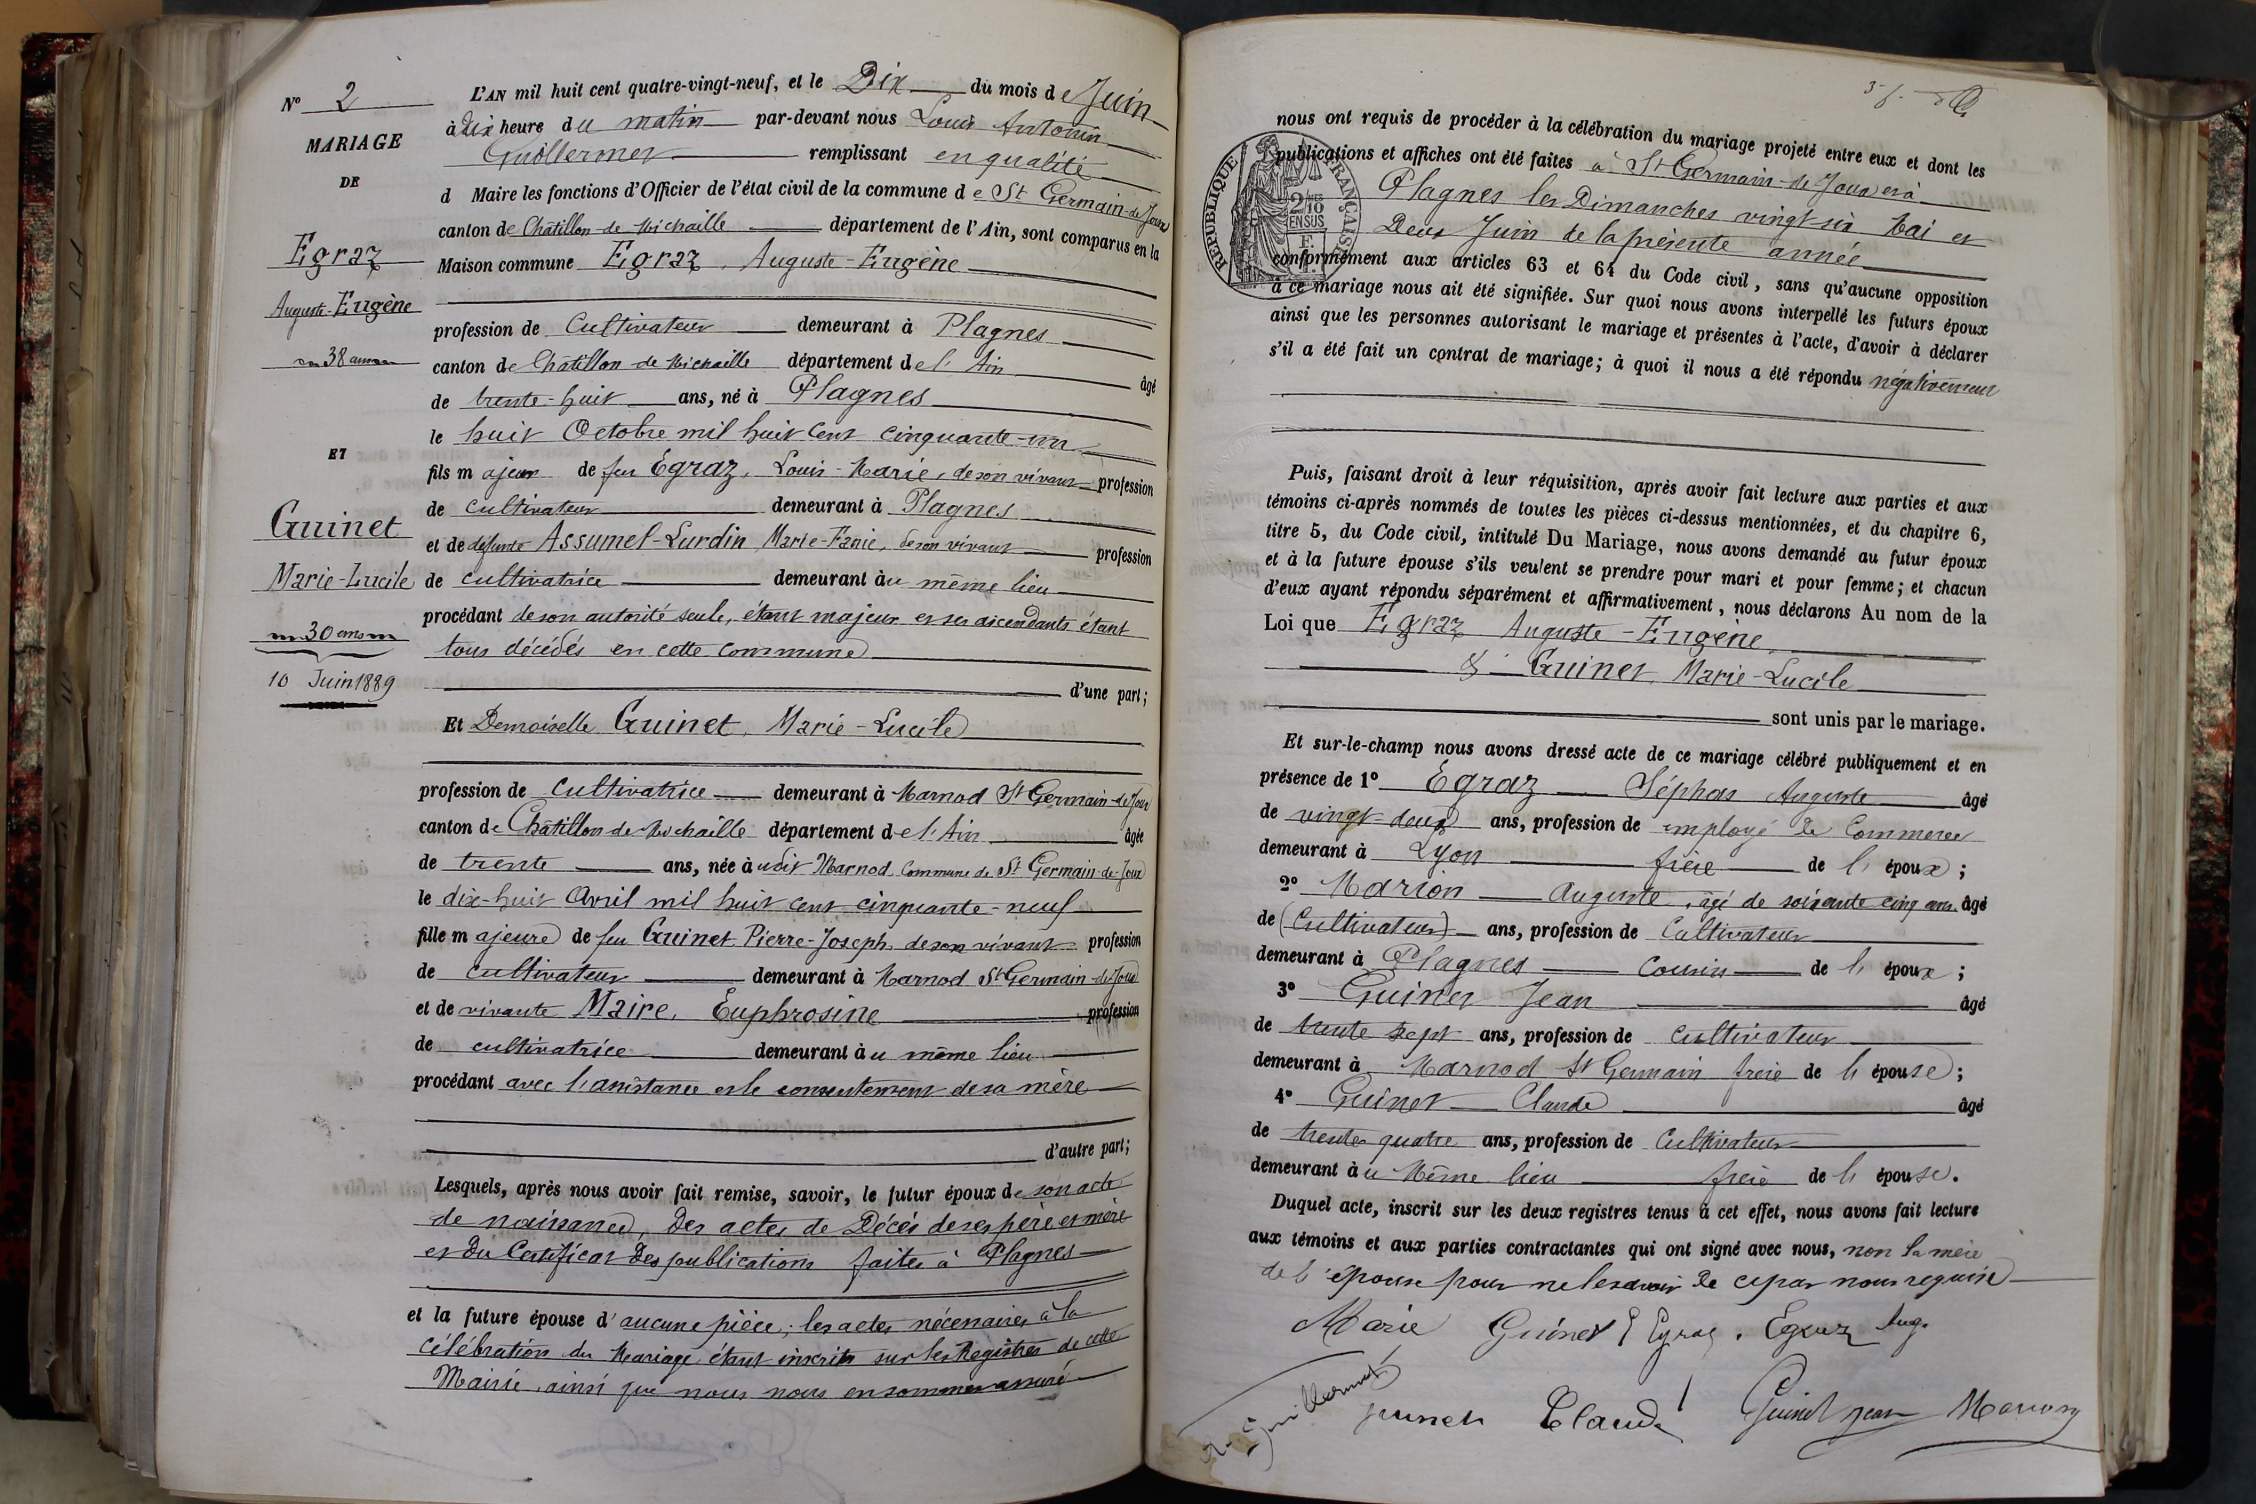 N° 2
MARIAGE
DE
Egraz
Auguste-Eugène
38 ans
ET
Guinet
Marie-Lucile
30 ans
10 Juin 1889
L'AN mil huit cent quatre-vingt-neuf, et le Dix du mois de Juin
à dix heure du matin par-devant nous Louis Antonin
Guillermet remplissant en qualité
d Maire les fonctions d'Officier de l'état civil de la commune de St Germain-de-Joux
canton de Châtillon-de-Michaille département de l'Ain, sont comparus en la
Maison commune Egraz, Auguste-Eugène
profession de Cultivateur demeurant à Plagnes
canton de Châtillon-de-Michaille département de l'Ain âgé
de trente-huit ans, né à Plagnes
le huit Octobre mil huit cent cinquante-un
fils majeur de feu Egraz, Louis-Marie, de son vivant profession
de cultivateur demeurant à Plagnes
et de défunte Assumel-Lurdin, Marie-Fanie, de son vivant profession
de cultivatrice demeurant au même lieu
procédant de son autorité seule, étant majeur et ses ascendants étant
tous décédés en cette commune
d'une part;
Et Demoiselle Guinet, Marie-Lucile
profession de cultivatrice demeurant à Marnod St Germain-de-Joux
canton de Châtillon-de-Michaille département de l'Ain âgée
de trente ans, née audit Marnod Commune de St Germain-de-Joux
le dix-huit Avril mil huit cent cinquante-neuf
fille majeure de feu Guinet Pierre-Joseph de son vivant profession
de cultivateur demeurant à Marnod St Germain-de-Joux
et de vivante Maire, Euphrosine profession
de cultivatrice demeurant au même lieu
procédant avec l'assistance et le consentement de sa mère
d'autre part;
Lesquels, après nous avoir fait remise, savoir, le futur époux de son acte
de naissance, des actes de Décés de ses père et mère
et du Certificat des publications faites à Plagnes
et la future épouse d'aucune pièce; les actes nécessaires à la
célébration du Mariage étant inscrits sur les Registres de cette
Mairie, ainsi que nous nous en sommes assuré
RÉPUBLIQUE FRANÇAISE
nous ont requis de procéder à la célébration du mariage projeté entre eux et dont les
publications et affiches ont été faites à St Germain-de-Joux et à
Plagnes les Dimanches vingt-six Mai et
Deux Juin de la présente année
conformément aux articles 63 et 64 du Code civil, sans qu'aucune opposition
à ce mariage nous ait été signifiée. Sur quoi nous avons interpellé les futurs époux
ainsi que les personnes autorisant le mariage et présentes à l'acte, d'avoir à déclarer
s'il a été fait un contrat de mariage; à quoi il nous a été répondu négativement
Puis, faisant droit à leur réquisition, après avoir fait lecture aux parties et aux
témoins ci-après nommés de toutes les pièces ci-dessus mentionnées, et du chapitre 6,
titre 5, du Code civil, intitulé Du Mariage, nous avons demandé au futur époux
et à la future épouse s'ils veulent se prendre pour mari et pour femme; et chacun
d'eux ayant répondu séparément et affirmativement, nous déclarons Au nom de la
Loi que Egraz Auguste-Eugène,
& Guinet, Marie-Lucile
sont unis par le mariage.
Et sur-le-champ nous avons dressé acte de ce mariage célébré publiquement et en
présence de 1° Egraz Séphas Auguste âgé
de vingt-deux ans, profession de employé de Commerce
demeurant à Lyon frère de l'époux;
2° Marion Auguste, âgé de soixante cinq ans âgé
de (Cultivateur) ans, profession de Cultivateur
demeurant à Plagnes cousin de l'époux;
3° Guinet Jean âgé
de trente sept ans, profession de cultivateur
demeurant à Marnod St Germain frère de l'épouse;
4° Guinet Claude âgé
de trente quatre ans, profession de Cultivateur
demeurant au Même lieu frère de l'épouse.
Duquel acte, inscrit sur les deux registres tenus à cet effet, nous avons fait lecture
aux témoins et aux parties contractantes qui ont signé avec nous, non la mère
de l'épouse pour ne le savoir de ce par nous requise
Marie Guinet E Egraz. Egraz Aug.
Guillermet
Guinet Claude Guinet Jean Marion